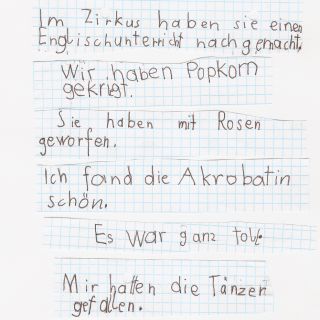 Im Zirkus haben sie einen
Englischunterricht nachgemacht.
Wir haben Popkorn
gekrigt.
Sie haben mit Rosen
geworfen.
Ich fand die Akrobatin
schön.
Es war ganz toll.
Mir hatten die Tänzer
gefallen.